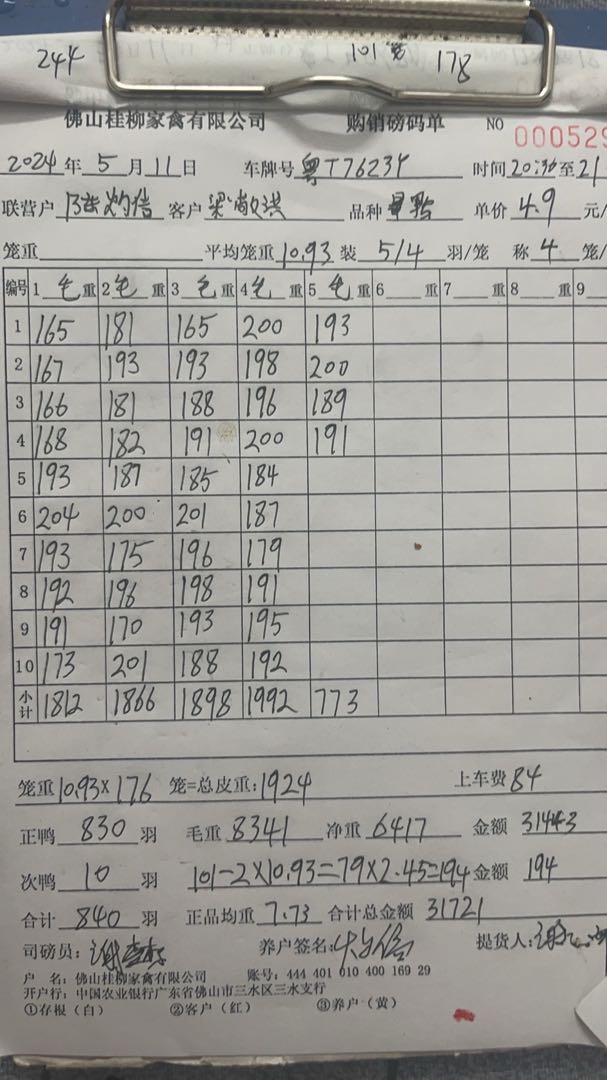 244 101笼 178
佛山桂柳家禽有限公司 购销磅码单 NO 000529
2024年5月11日 车牌号 粤T7623Y 时间20:30至21
联营户 客户 品种 单价4.9元/
笼重 平均笼重10.93装5/4羽/笼 称4笼/
编号 1毛重 2毛重 3毛重 4毛重 5毛重 6 重 7 重 8 重 9
1 165 181 165 200 193
2 167 193 193 198 200
3 166 181 188 196 189
4 168 182 191 200 191
5 193 187 185 184
6 204 200 201 187
7 193 175 196 179
8 192 196 198 191
9 191 170 193 195
10 173 201 188 192
小计 1812 1866 1898 1992 773
笼重10.93×176笼=总皮重:1924 上车费84
正鸭830羽 毛重8341 净重6417 金额31443
次鸭10羽 101-2×10.93=79×2.45=194 金额194
合计840羽 正品均重7.73 合计总金额31721
司磅员: 养户签名: 提货人:
户 名:佛山桂柳家禽有限公司 账号:444 401 010 400 169 29
开户行:中国农业银行广东省佛山市三水区三水支行
①存根(白) ②客户(红) ③养户(黄)